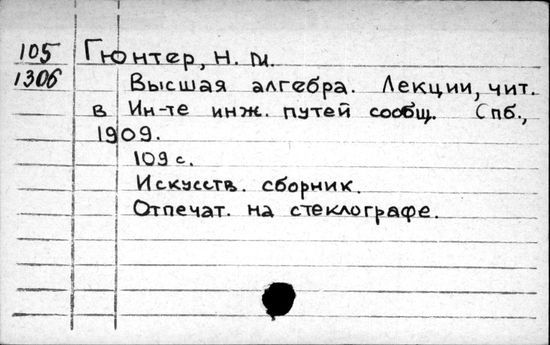 105 Гюнтер, Н. М.
1306 Высшая алгебра. Лекции, чит.
в Ин-те инж. путей сообщ. Спб.,
1909.
109 с.
Искусств. сборник.
Отпечат. на стеклографе.